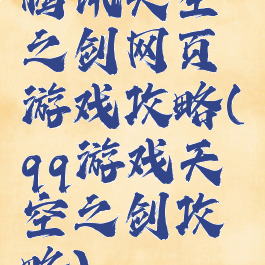 腾讯天空
之剑网页
游戏攻略(
qq游戏天
空之剑攻
略)